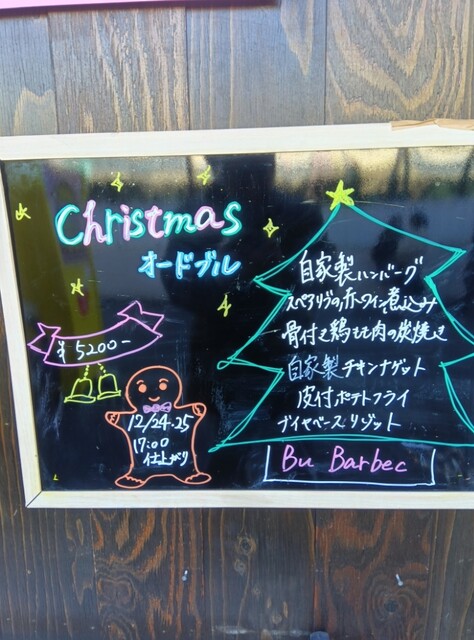 Christmas
オードブル
¥5200-
12/24・25
17:00
仕上がり
自家製ハンバーグ
スペアリブの赤ワイン煮込み
骨付き鶏もも肉の炭焼き
自家製チキンナゲット
皮付ポテトフライ
ブイヤベースリゾット
Bu Barbec